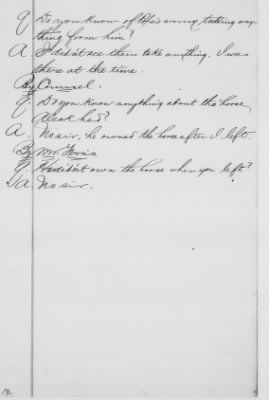 Q Do you know of this army taking any-
thing from him?
A I didn't see them take anything. I was
there at the time.
By Counsel.
Q. Do you know anything about the horse
Meak had?
A. No sir, he owned the horse after I left.
By Mr.
Q He didn't own the horse when you left?
A. No sir.
18.